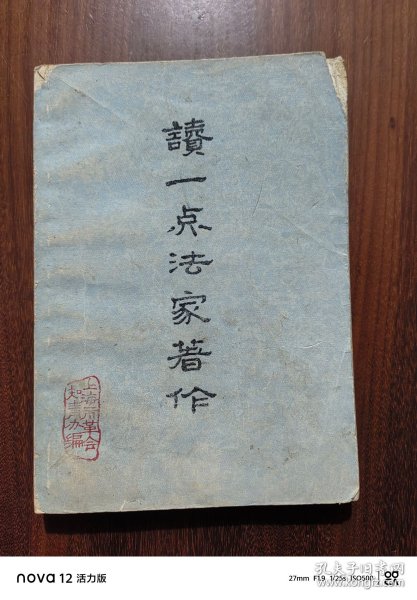 讀一点法家著作
上海市革会
知青办编
nova 12 活力版
27mm F1.9 1/25s ISO500
孔夫子旧书网